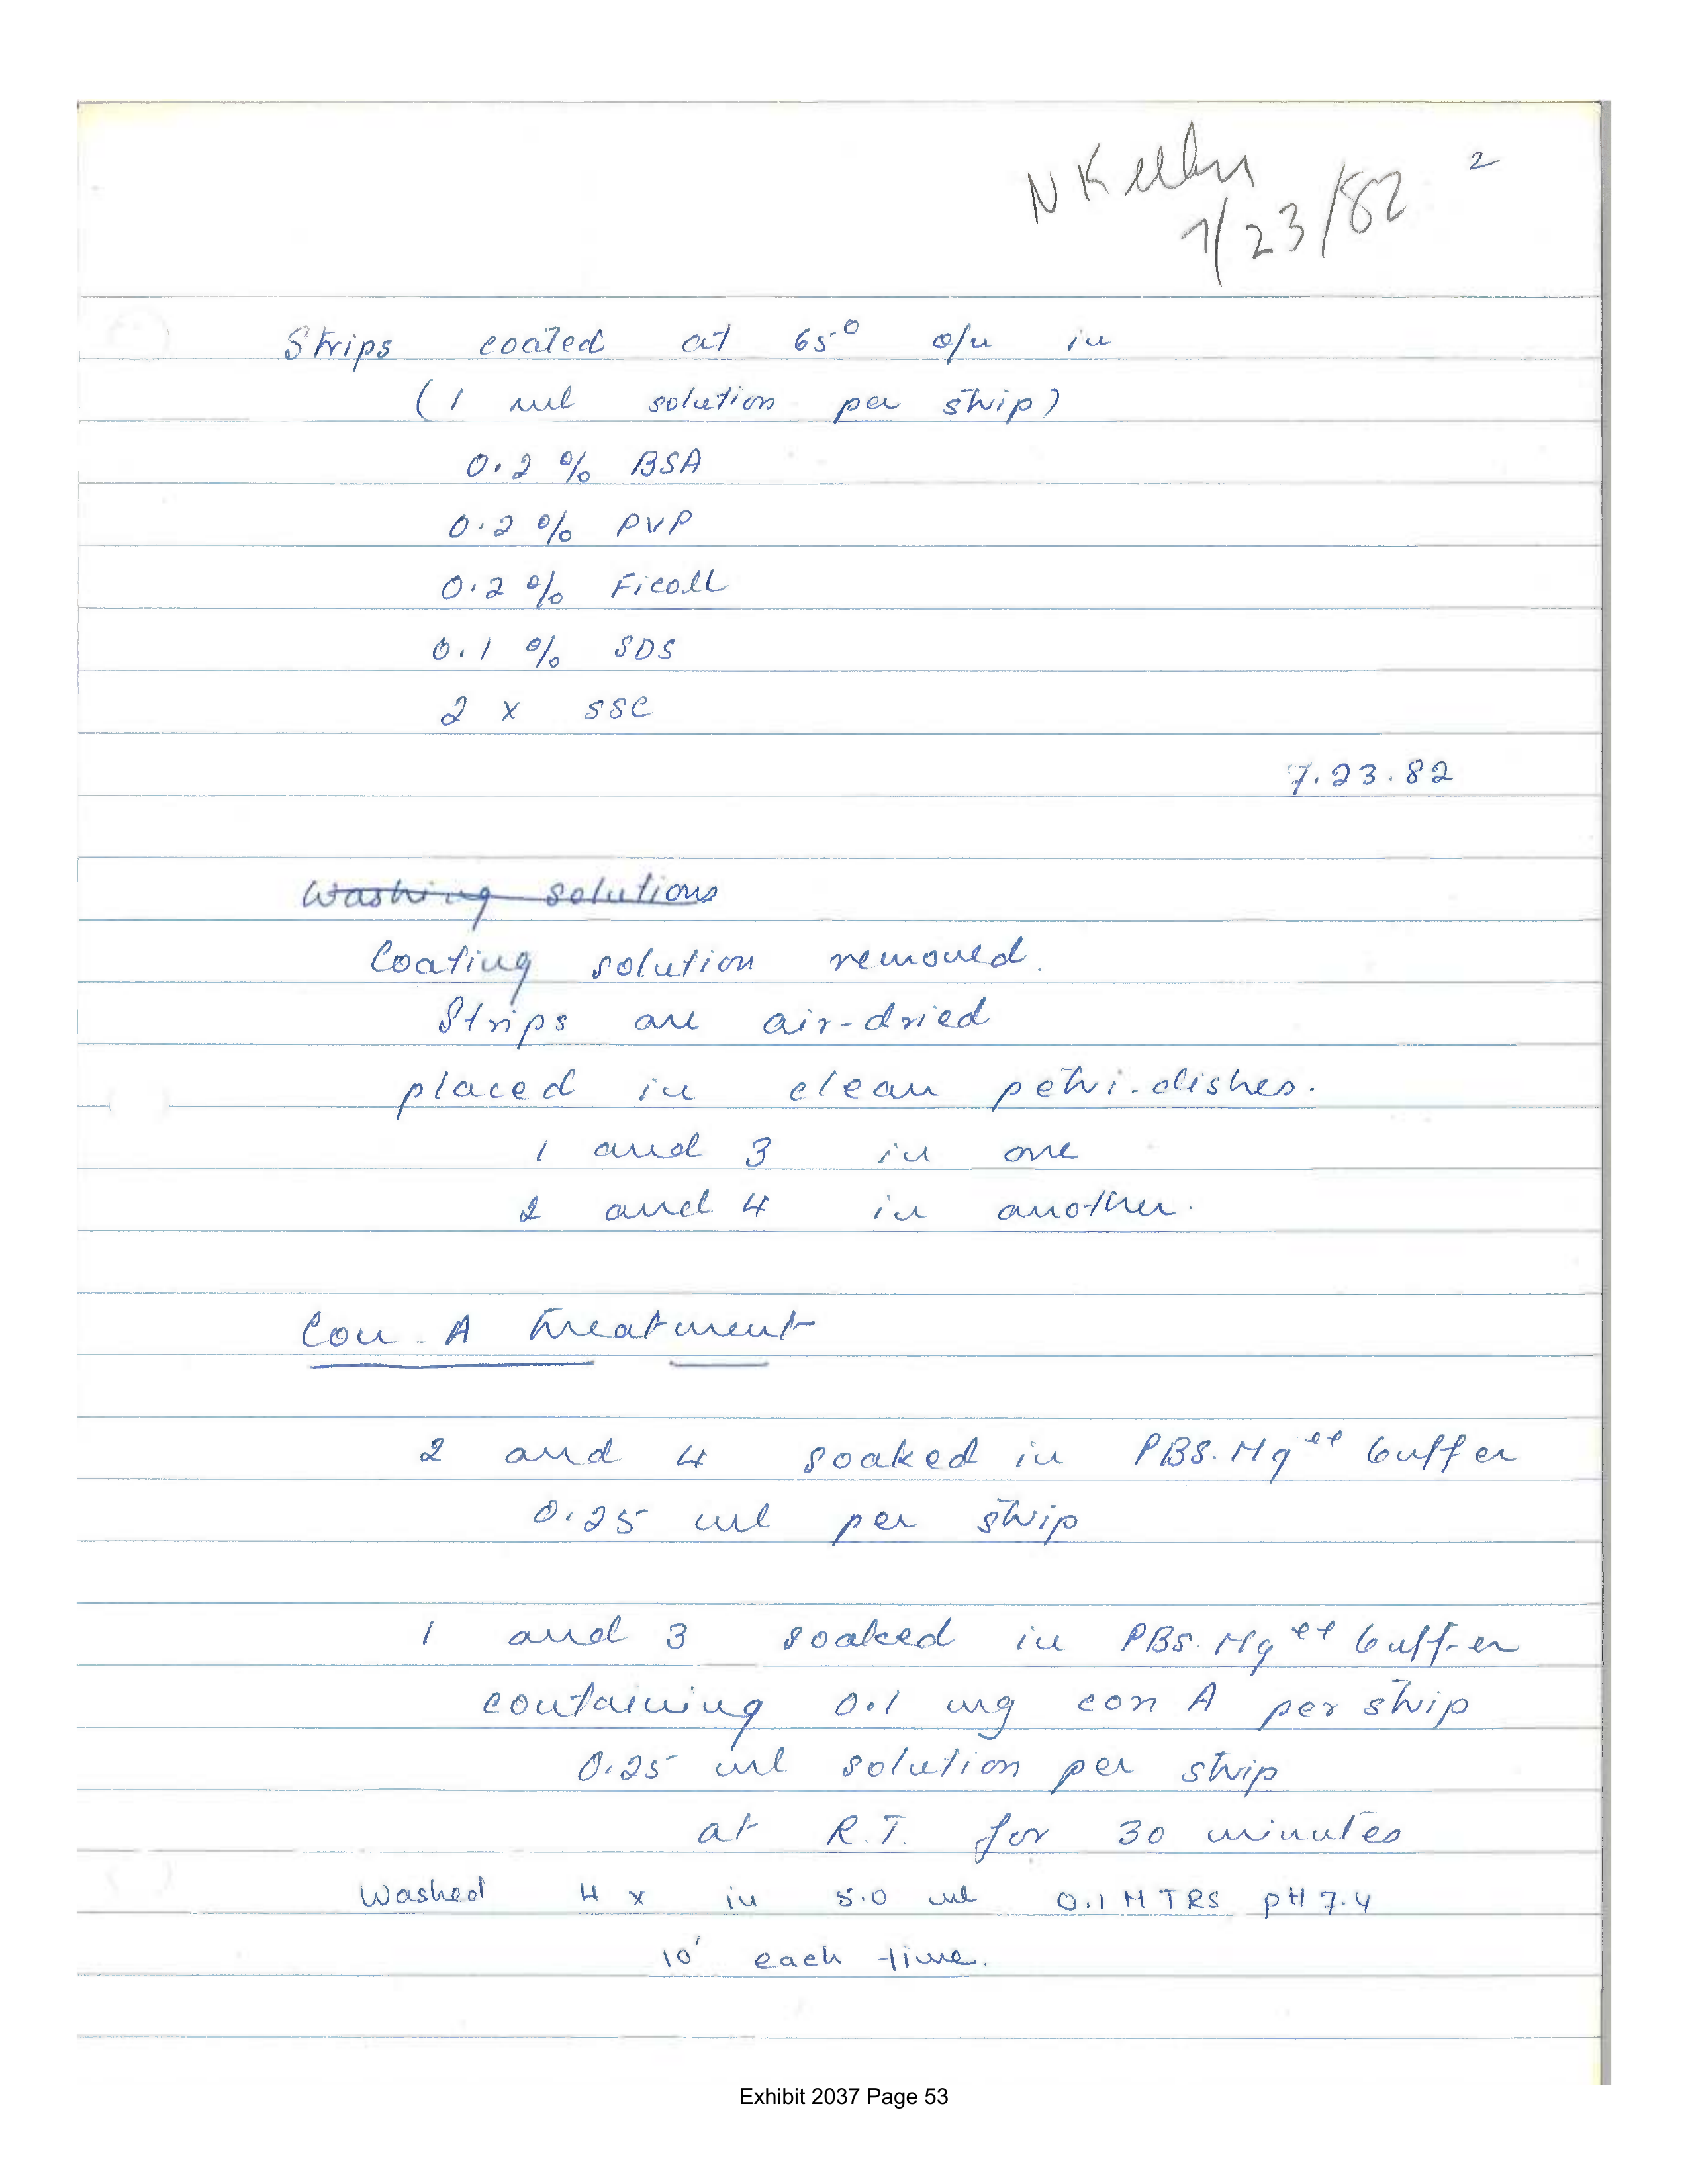 N Kelln
7/23/82
2
Strips coated at 65° o/n in
(1 ml solution per strip)
0.2 % BSA
0.2 % PVP
0.2 % Ficoll
0.1 % SDS
2 x SSC
7.23.82
Washing solutions
Coating solution removed.
Strips are air-dried
placed in clean petri-dishes.
1 and 3 in one
2 and 4 in another.
Con-A treatment
2 and 4 soaked in PBS.Mg++ buffer
0.25 ml per strip
1 and 3 soaked in PBS.Mg++ buffer
containing 0.1 mg con A per strip
0.25 ml solution per strip
at R.T. for 30 minutes
Washed 4 x in 5.0 ml 0.1 M TRS pH 7.4
10' each time.
Exhibit 2037 Page 53